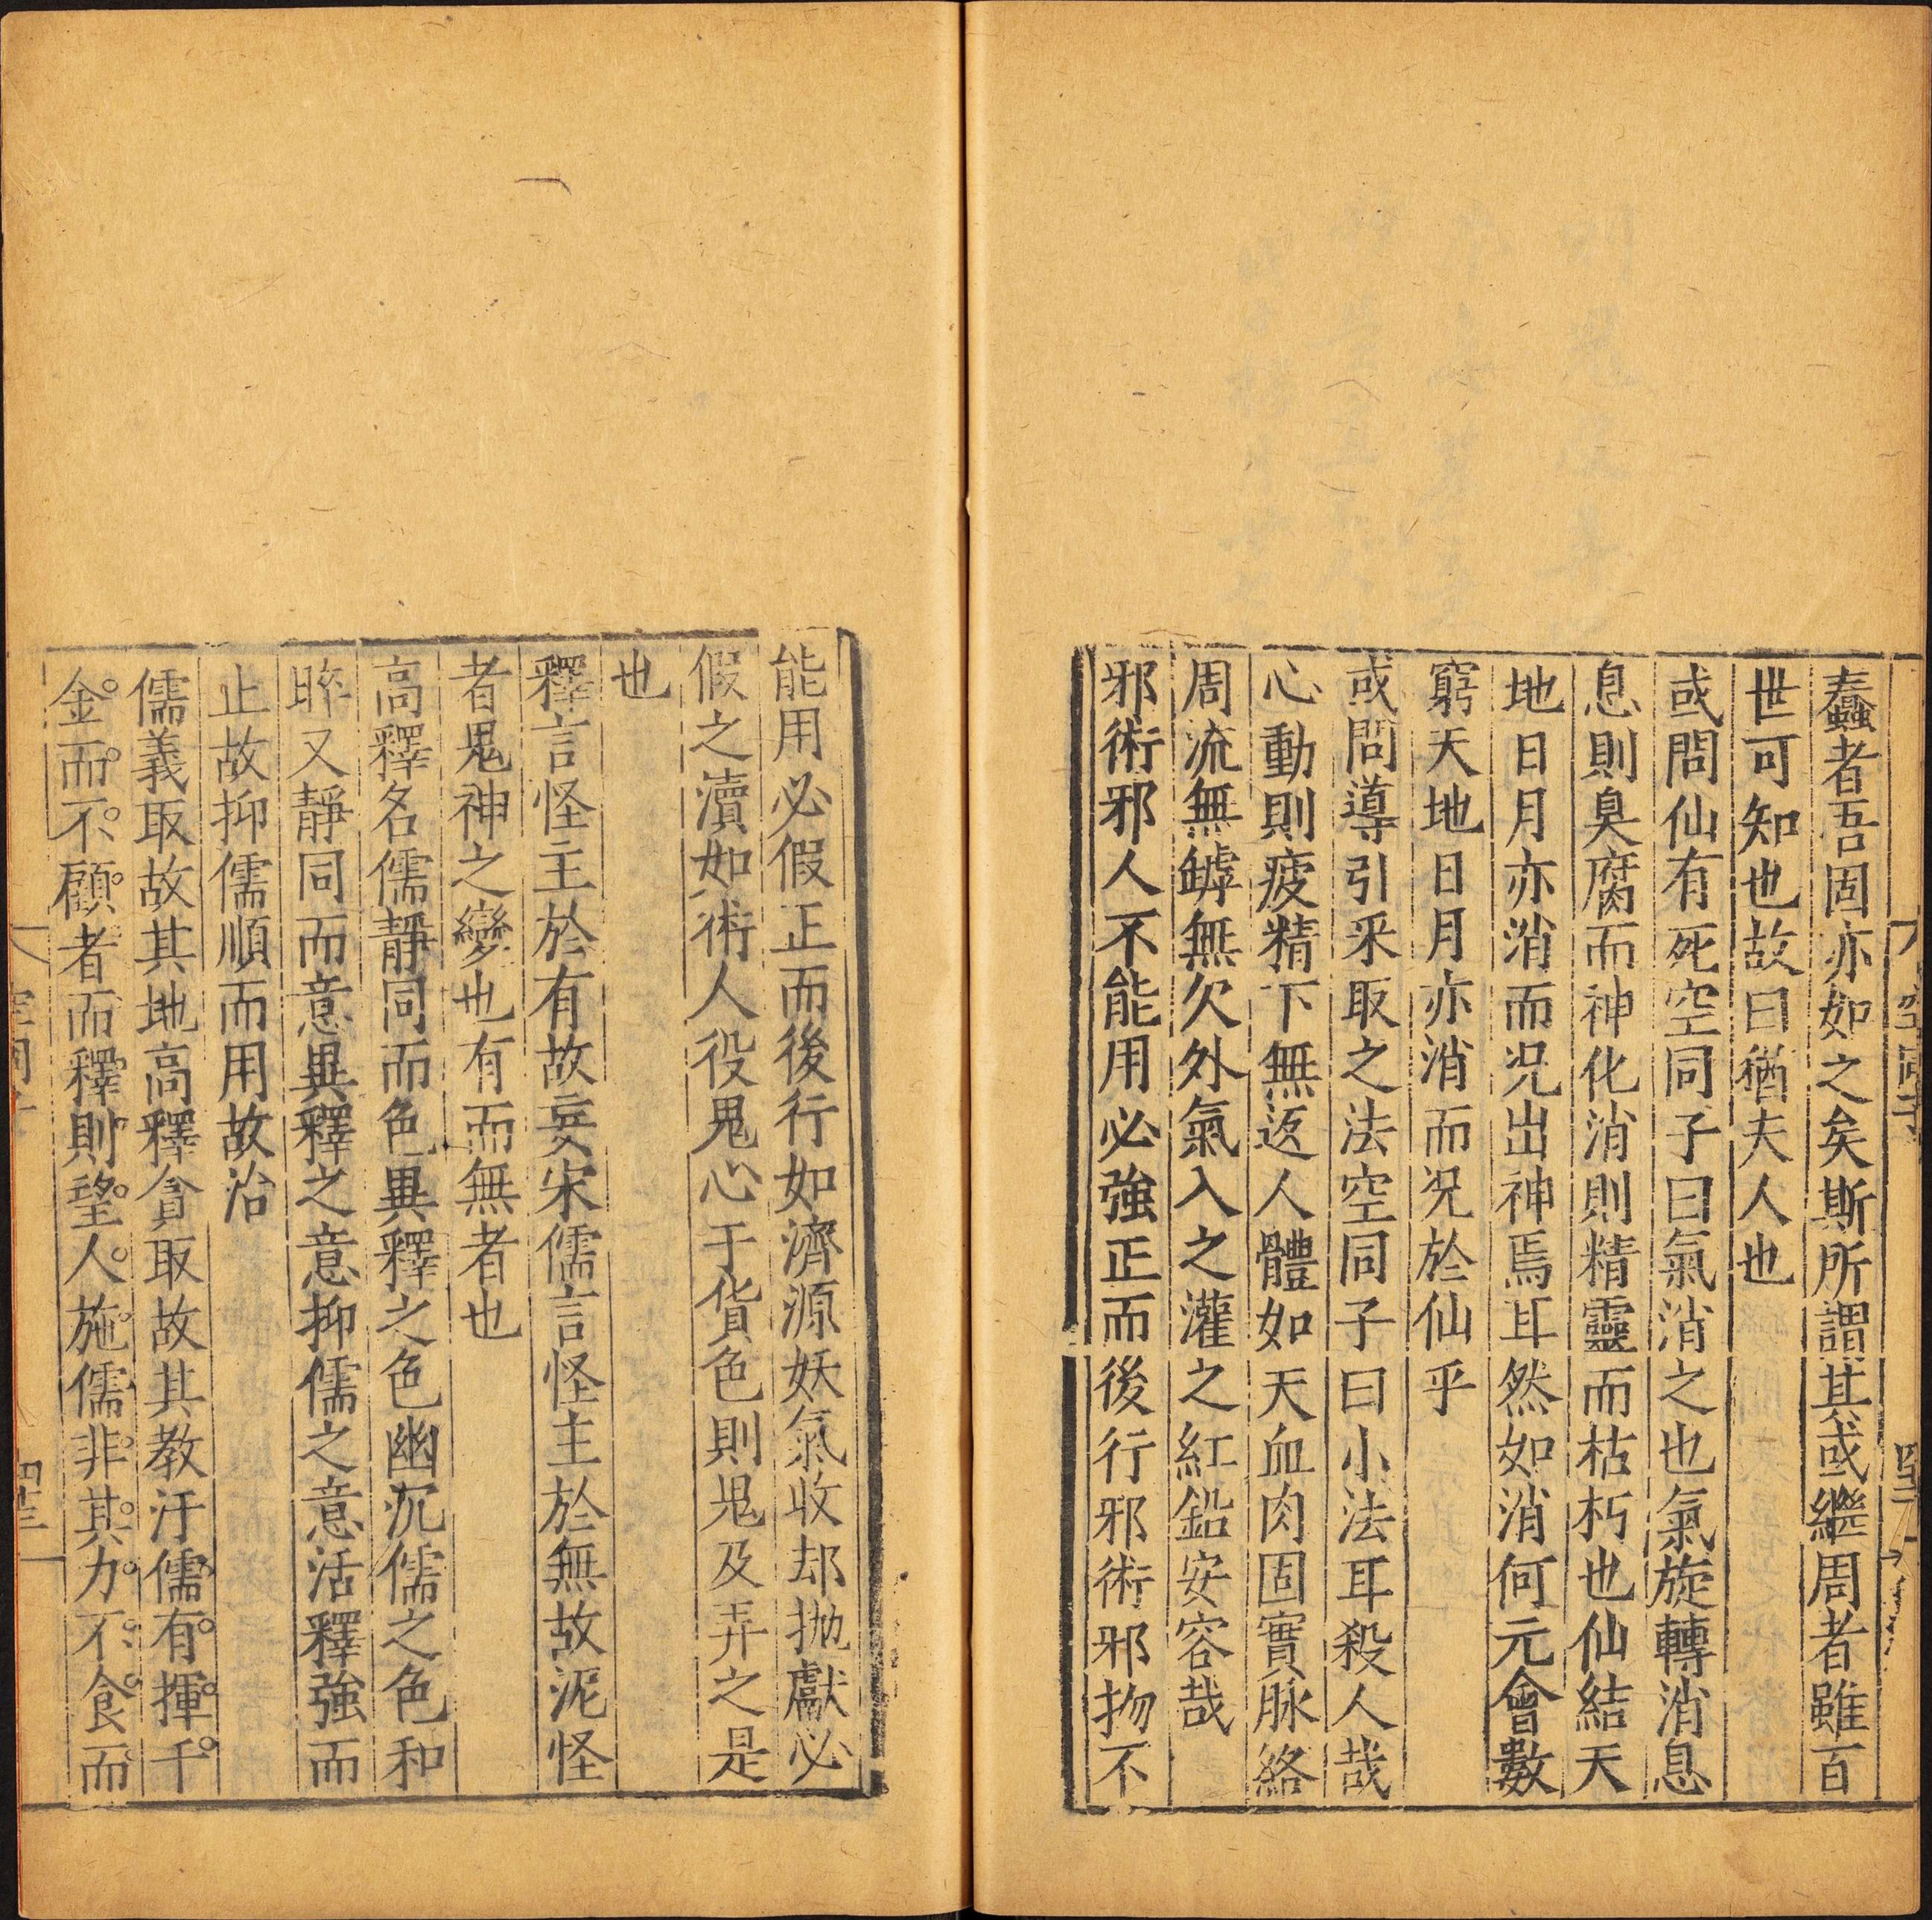 蠢者吾固亦如之矣斯所謂其或繼周者雖百
世可知也故曰猶夫人也
或問仙有死空同子曰氣消之也氣旋轉消息
息則臭腐而神化消則精靈而枯朽也仙結天
地日月亦消而况出神焉耳然如消何元會數
窮天地日月亦消而况於仙乎
或問導引采取之法空同子曰小法耳殺人哉
心動則疲精下無返人體如天血肉固實脉絡
周流無罅無欠外氣入之灌之紅鉛安容哉
邪術邪人不能用必強正而後行邪術邪物不
能用必假正而後行如濟源妖氣收却拋獻必
假之瀆如術人役鬼心于貨色則鬼及弄之是
也
釋言怪主於有故妄宋儒言怪主於無故泥怪
者鬼神之變也有而無者也
高釋名儒靜同而色異釋之色幽沉儒之色和
睟又靜同而意異釋之意抑儒之意活釋強而
止故抑儒順而用故治
儒義取故其地高釋貪取故其教汙儒有揮千
金而不顧者而釋則望人施儒非其力不食而